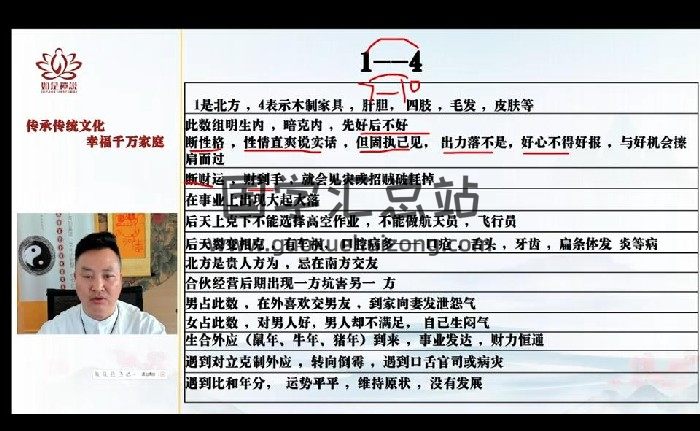 1—4
7—10
如是禅説
传承传统文化
幸福千万家庭
1是北方，4表示木制家具，肝胆，四肢，毛发，皮肤等
此数组明生内，暗克内，先好后不好
断性格，性情直爽说实话，但固执己见，出力落不是，好心不得好报，与好机会擦
肩而过
断财运，财到手，就会见灾或招贼破耗掉
在事业上出现大起大落
后天上克下不能选择高空作业，不能做航天员，飞行员
后天 口腔 舌头，牙齿，扁条体发 炎等病
北方是贵人方为，忌在南方交友
合伙经营后期出现一方坑害另一 方
男占此数，在外喜欢交男友，到家向妻发泄怨气
女占此数，对男人好，男人却不满足，自己生闷气
生合外应（鼠年、牛年、猪年）到来，事业发达，财力恒通
遇到对立克制外应，转向倒霉，遇到口舌官司或病灾
遇到比和年分， 运势平平，维持原状，没有发展
国学汇总站
guoxuehuizong.com